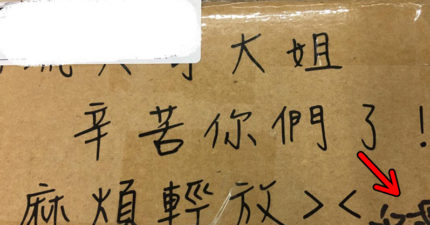 大哥大姐
辛苦你們了!
麻煩輕放><